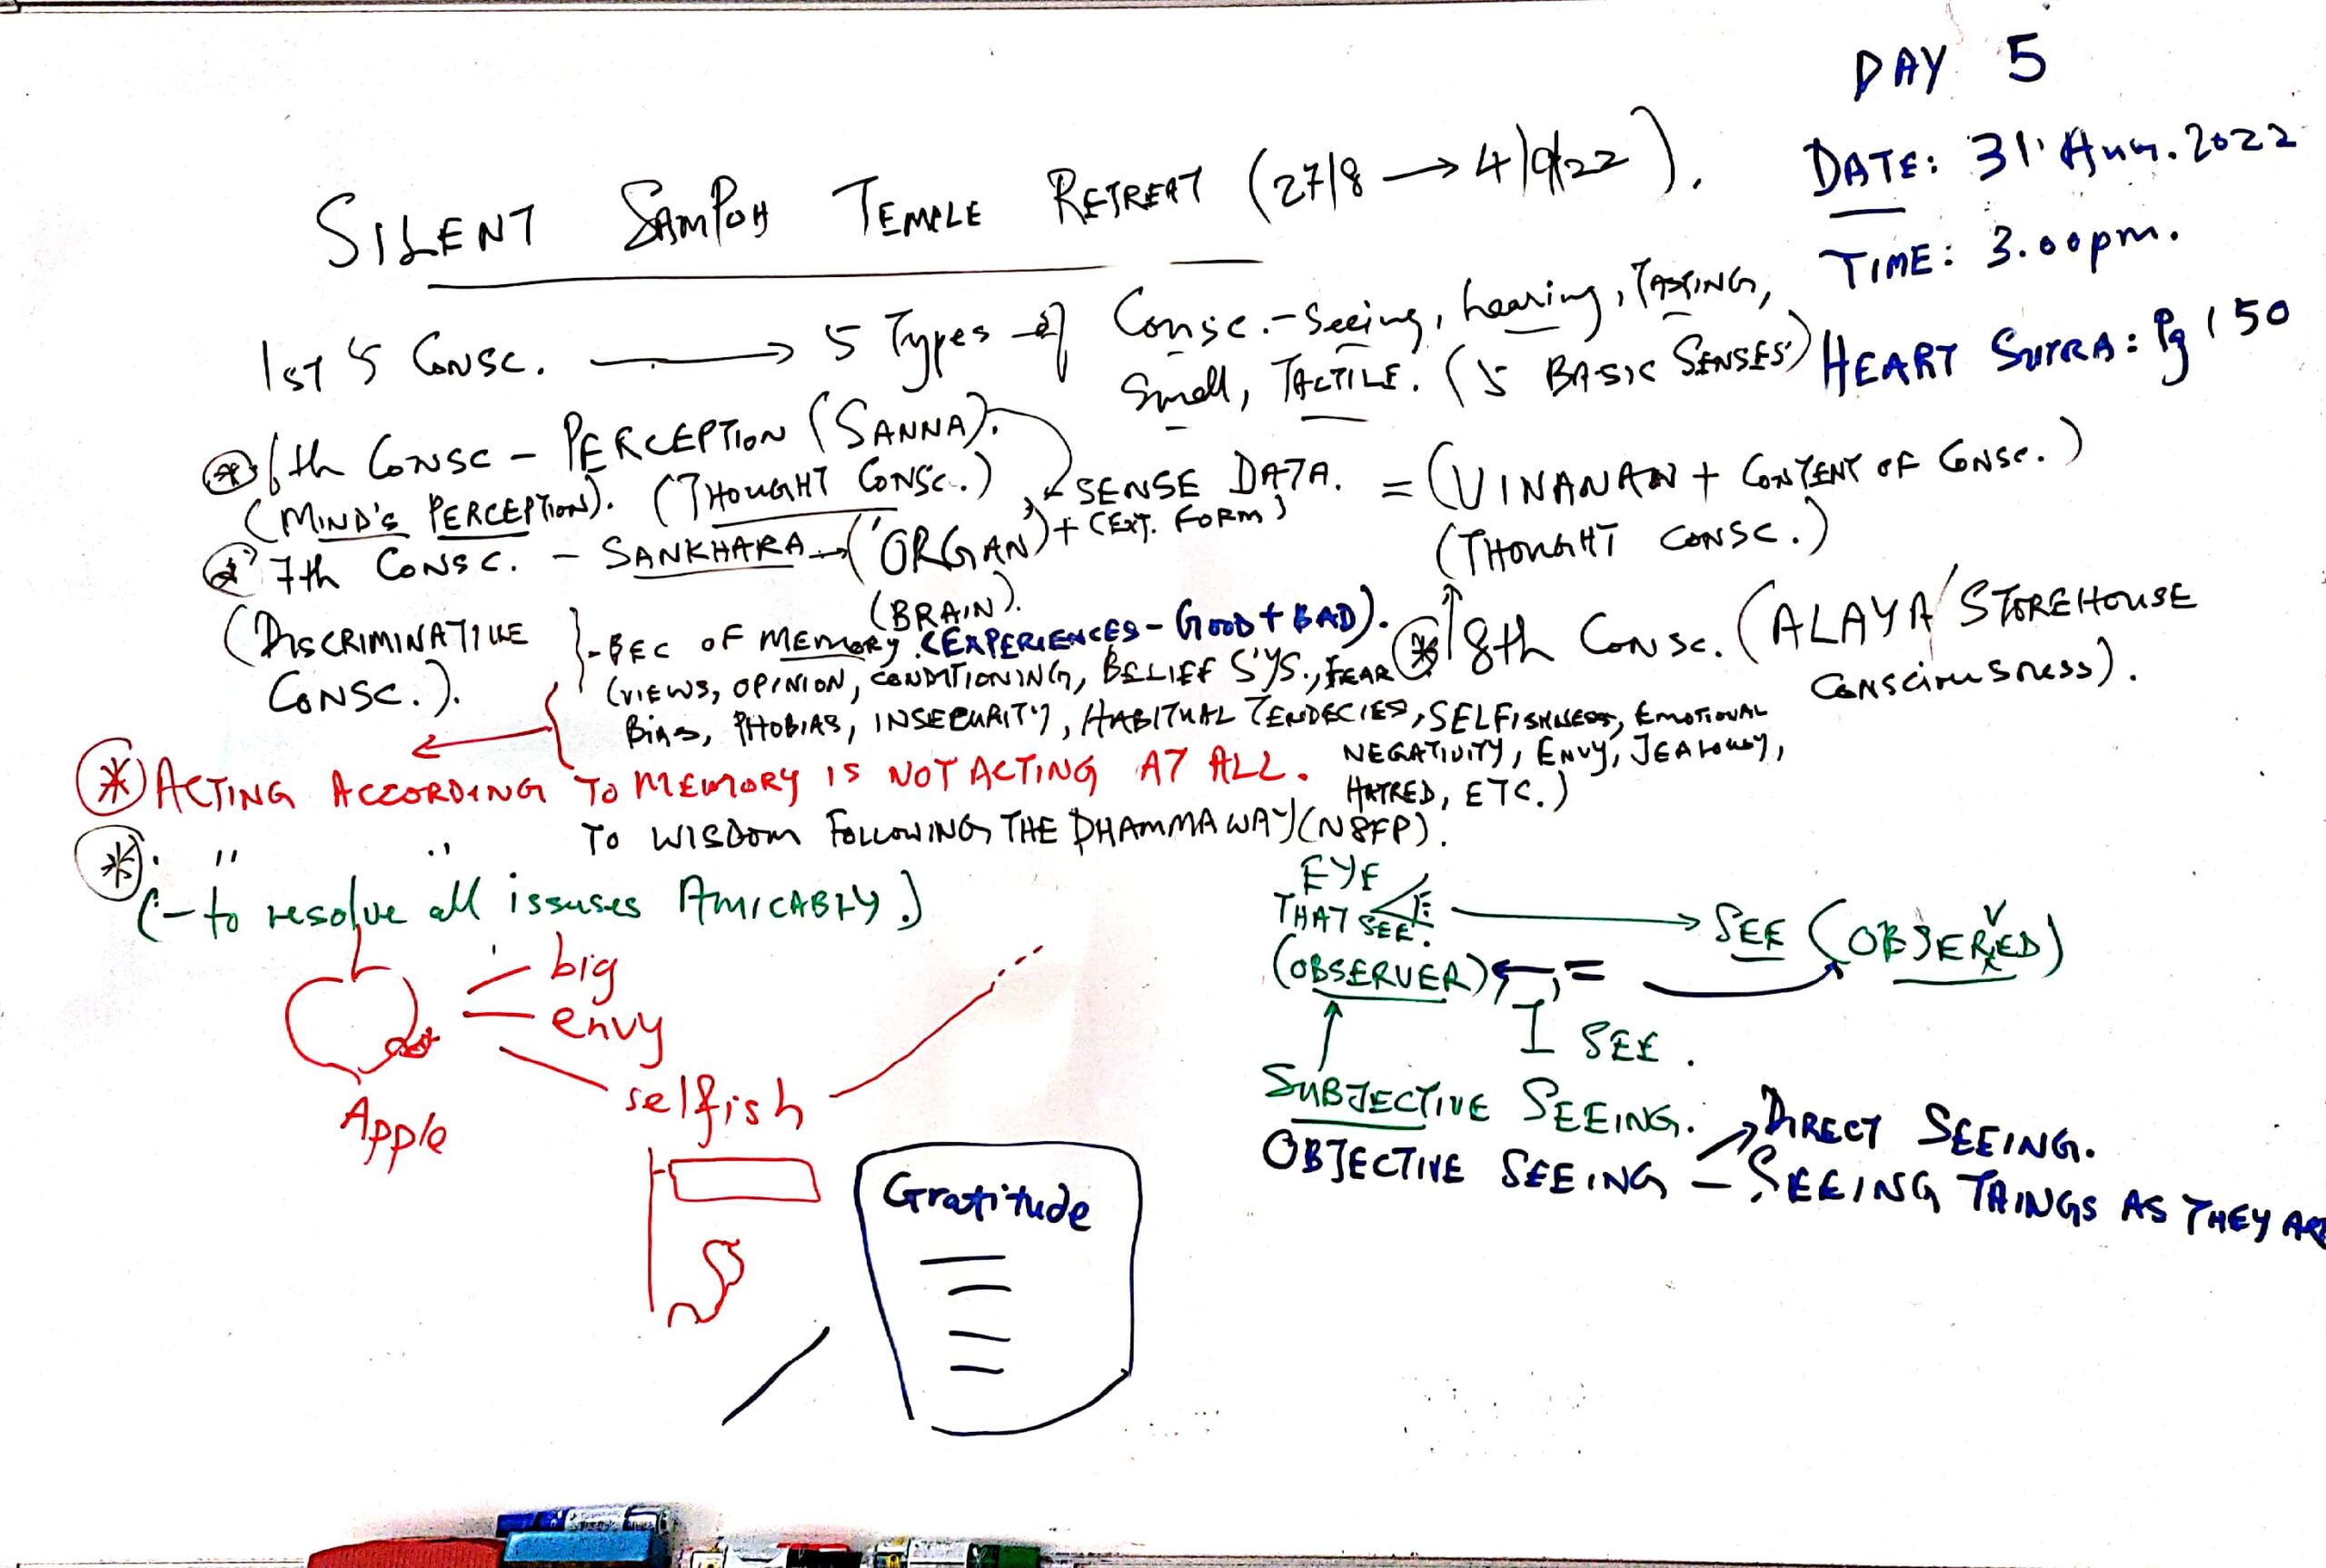 DAY 5
DATE: 31 Aug. 2022
SILENT SAMPOH TEMPLE RETREAT (27/8 → 4/9/22).
TIME: 3.00pm.
HEART SUTRA: Pg 150
1ST 5 CONSC. → 5 Types of Consc. - Seeing, hearing, TASTING,
Smell, TACTILE. (5 BASIC SENSES)
* 6th CONSC - PERCEPTION (SANNA).
(MIND'S PERCEPTION). (THOUGHT CONSC.)
SENSE DATA. = (VINANAN + CONTENT OF CONSC.)
(THOUGHT CONSC.)
* 7th CONSC. - SANKHARA → ('ORGAN') + (EXT. FORM)
(BRAIN).
(DISCRIMINATIVE
CONSC.).
- BEC OF MEMORY (EXPERIENCES - GOOD + BAD).
(VIEWS, OPINION, CONDITIONING, BELIEF SYS., FEAR
BIAS, PHOBIAS, INSECURITY, HABITUAL TENDECIES, SELFISHNESS, EMOTIONAL
NEGATIVITY, ENVY, JEALOUSY,
HATRED, ETC.)
* 8th Consc. (ALAYA/STOREHOUSE
CONSCIOUSNESS).
* ACTING ACCORDING TO MEMORY IS NOT ACTING AT ALL.
* " " TO WISDOM FOLLOWING THE DHAMMA WAY (N8FP).
(- to resolve all issuses AMICABLY.)
EYE
THAT SEE.
(OBSERVER)
→ SEE (OBSERVED)
=
I SEE.
SUBJECTIVE SEEING.
OBJECTIVE SEEING - SEEING THINGS AS THEY
DIRECT SEEING.
big
envy
selfish
Apple
Gratitude